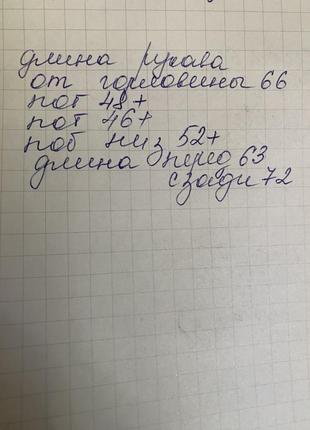 длина рукава
от горловины 66
пог 48+
пот 46+
поб низ 52+
длина перед 63
сзади 72